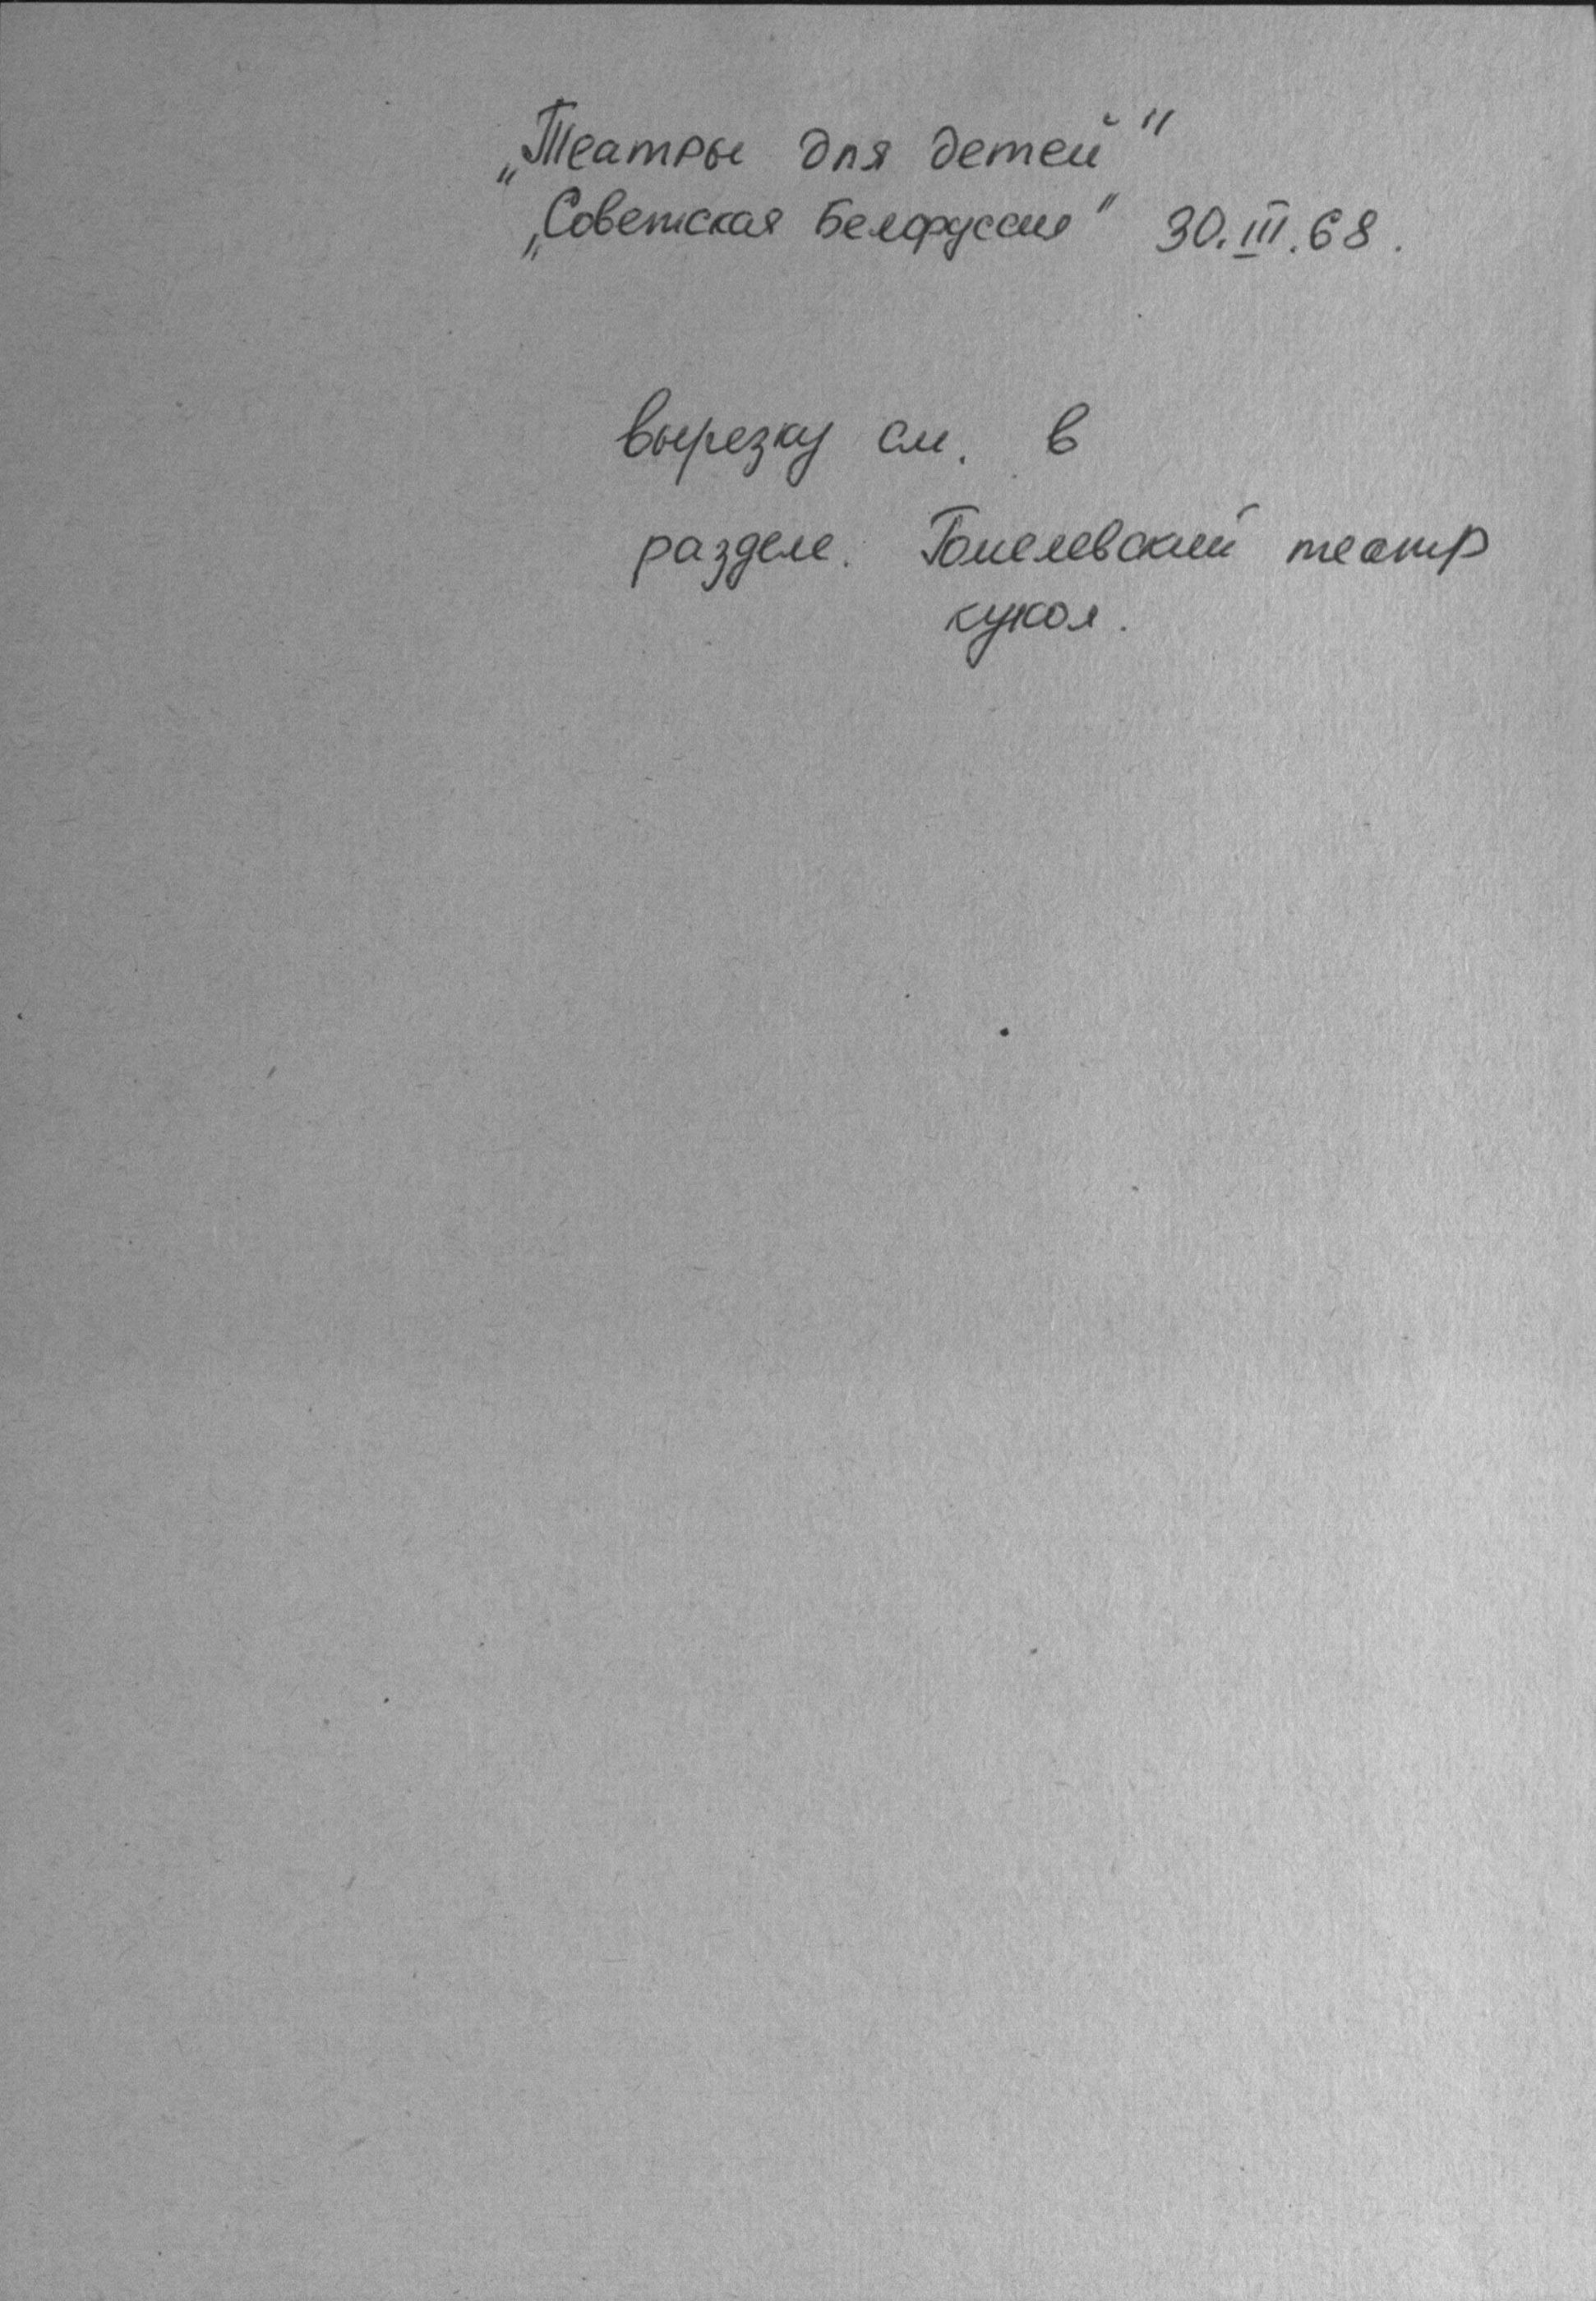 „Театры для детей"
„Советская Белоруссия" 30.III.68.
вырезку см. в
разделе. Гомелевский театр
кукол.